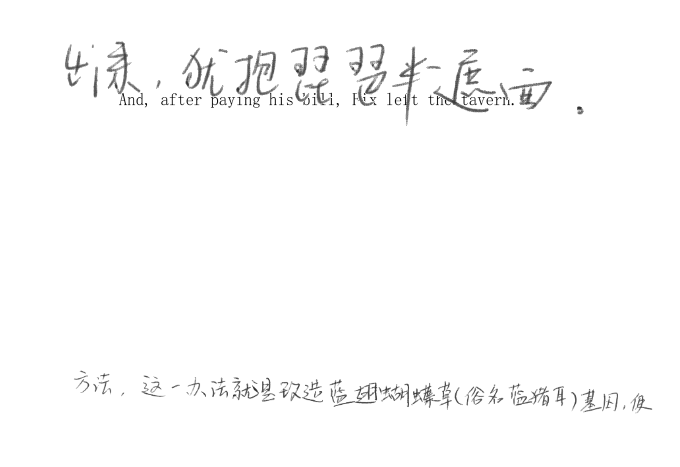 出来，犹抱琵琶半遮面．
And, after paying his bill, Fix left the tavern.
方法，这一办法就是改造蓝翅蝴蝶草(俗名蓝猪耳)基因，使